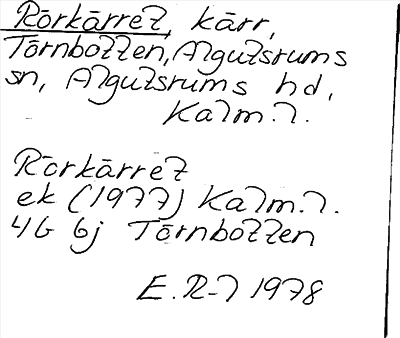 Rörkärret, kärr,
Törnbotten, Algutsrums
sn, Algutsrums hd,
Kalm. l.
Rörkärret
ek (1977) Kalm. l.
4G 6j Törnbotten
E. R-l 1978